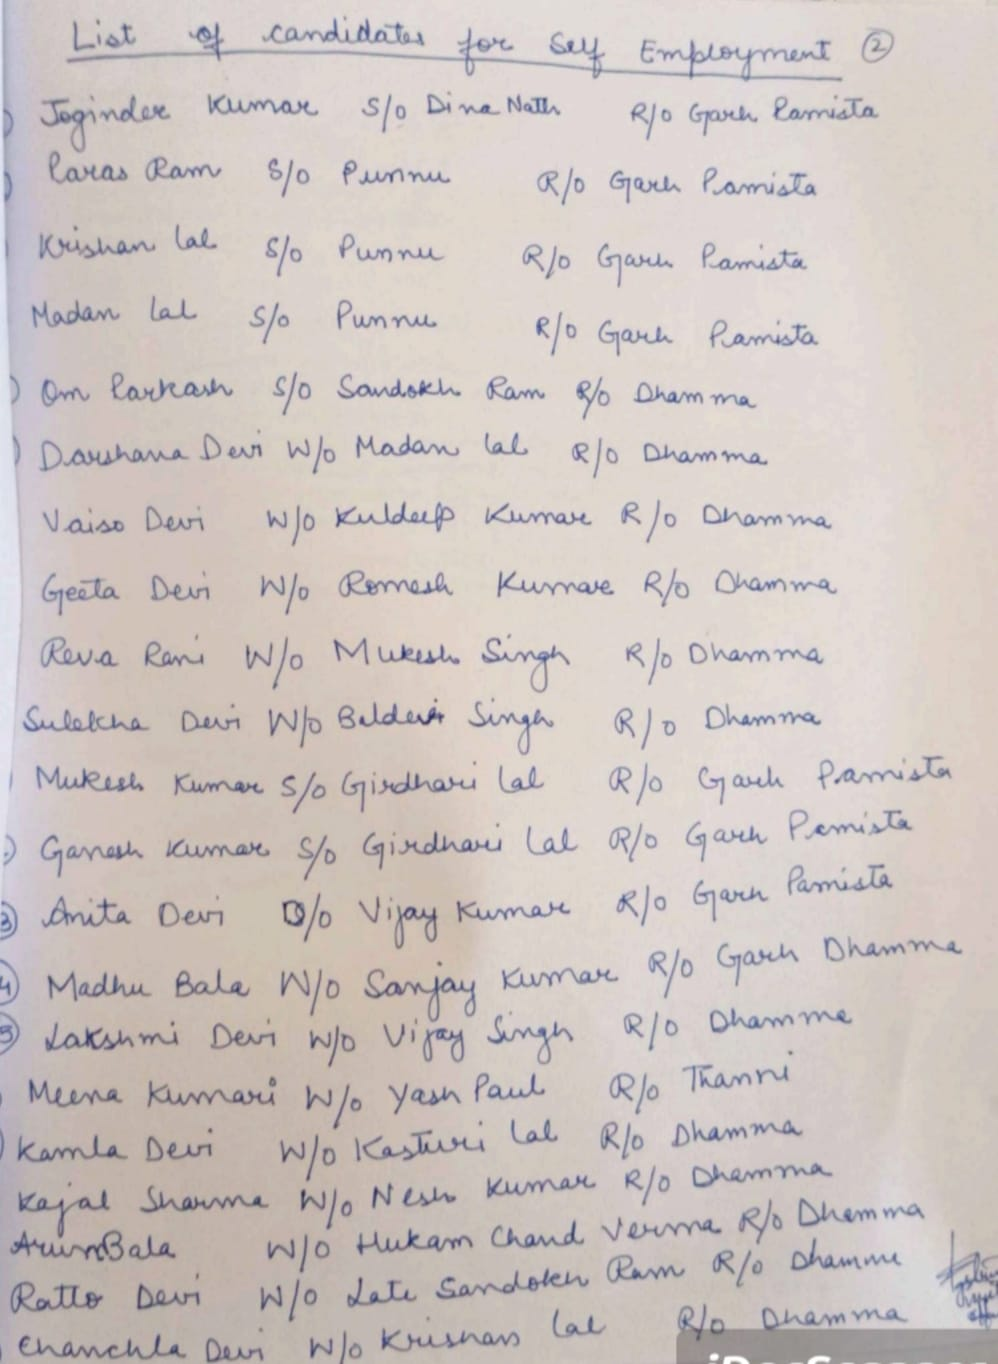 List of candidates for Self Employment ②
Joginder Kumar S/o Dina Nath R/o Garh Pamista
Paras Ram S/o Punnu R/o Garh Pamista
Krishan lal S/o Punnu R/o Garh Pamista
Madan lal S/o Punnu R/o Garh Pamista
Om Parkash S/o Sandokh Ram R/o Dhamma
Darshana Devi W/o Madan lal R/o Dhamma
Vaiso Devi W/o Kuldeep Kumar R/o Dhamma
Geeta Devi W/o Romesh Kumar R/o Dhamma
Reva Rani W/o Mukesh Singh R/o Dhamma
Sulekha Devi W/o Baldev Singh R/o Dhamma
Mukesh Kumar S/o Girdhari Lal R/o Garh Pamista
Ganesh Kumar S/o Girdhari Lal R/o Garh Pamista
3 Anita Devi D/o Vijay Kumar R/o Garh Pamista
4 Madhu Bala W/o Sanjay Kumar R/o Garh Dhamma
5 Lakshmi Devi W/o Vijay Singh R/o Dhamma
Meena Kumari W/o Yash Paul R/o Thanni
Kamla Devi W/o Kasturi Lal R/o Dhamma
Kajal Sharma W/o Nesh Kumar R/o Dhamma
Arun Bala W/o Hukam Chand Verma R/o Dhamma
Ratto Devi W/o Late Sandokh Ram R/o Dhamma
Chanchla Devi W/o Krishan Lal R/o Dhamma